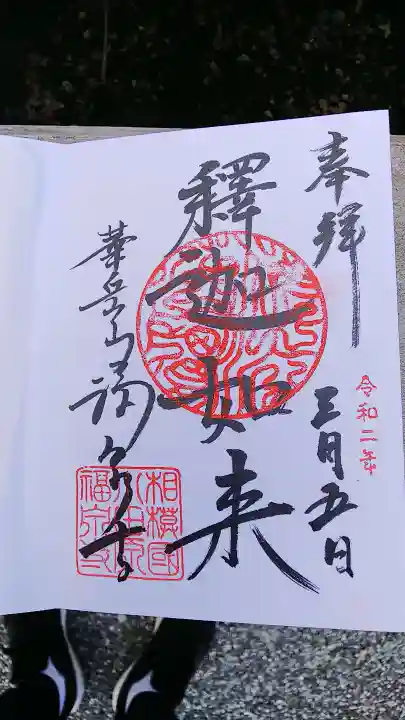 奉拝
令和二年
三月五日
釋迦如来
華岳山福泉寺
相模國
小田原
福泉寺